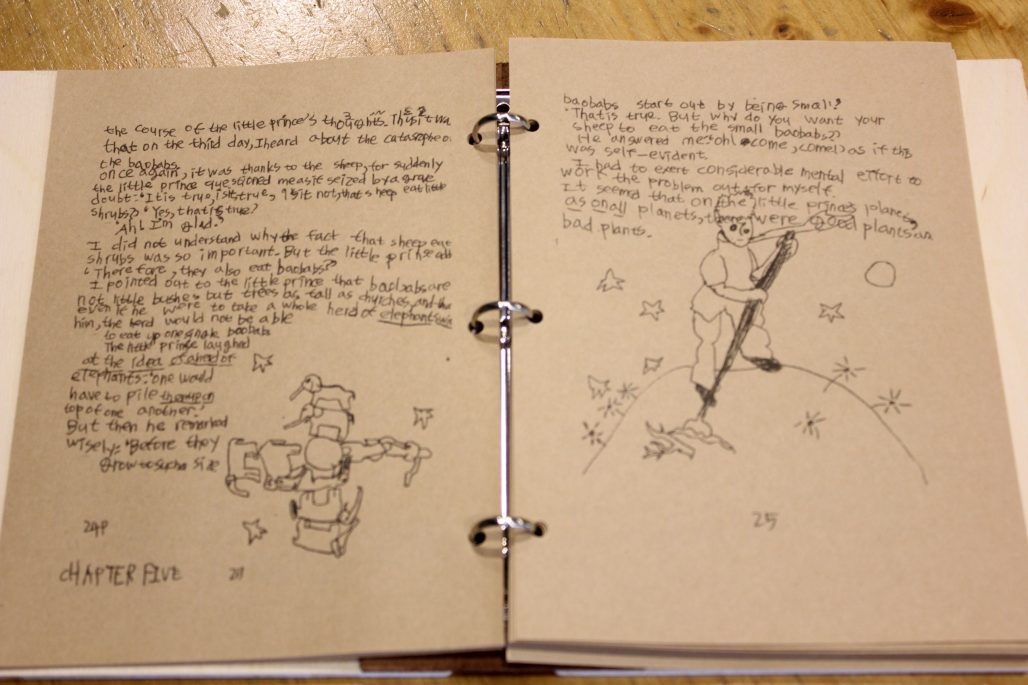 the course of the little prince's thoughts. Thus it wa
that on the third day, I heard about the catastrophe o
the baobabs.
once again, it was thanks to the sheep, for suddenly
the little prince questioned me as if seized by a grave
doubt: 'It is true, is it not, that sheep eat little
shrubs?' 'Yes, that is true.'
'Ah! I'm glad.'
I did not understand why the fact that sheep eat
shrubs was so important. But the little prinse add
'Therefore, they also eat baobabs?'
I pointed out to the little prince that baobabs are
not little bushes but trees as tall as churches, and tha
even if he were to take a whole herd of elephants wi
him, the herd would not be able
to eat up one single baobabs
The little prince laughed
at the idea of a herd of
elephants: 'one would
have to pile them on
top of one another.'
But then he remarked
wisely: 'Before they
grow to such a size
24P
CHAPTER FIVE
baobabs start out by being small?
'That is true. But why do you want your
sheep to eat the small baobabs??
He answered me: 'oh! come, come!' as if this
was self-evident.
I had to exert considerable mental effort to
work the problem out for myself.
It seemed that on the little prince's planet,
as on all planets, there were good plants an
bad plants.
25